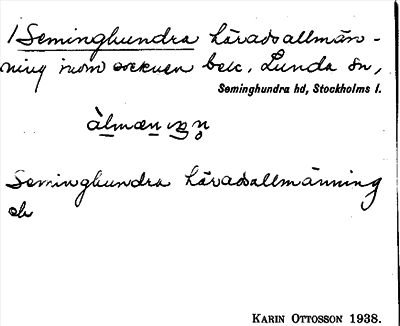 1 Seminghundra häradsallmän-
ning inom socknen bela. Lunda sn,
Seminghundra hd, Stockholms l.
Seminghundra häradsallmänning
KARIN OTTOSSON 1938.